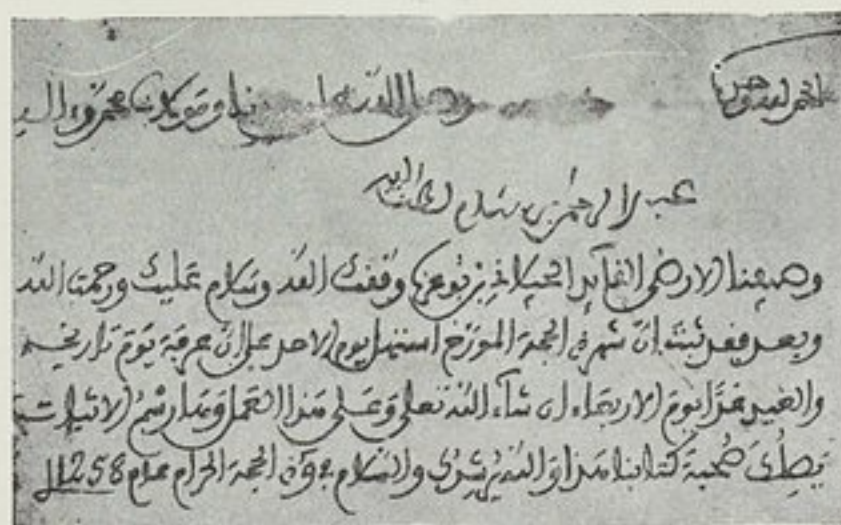 الحمد لله وحده وصلى الله على سيدنا ومولانا محمد وءاله
عبد الرحمن بن
وصيفنا الارضى القايد الجيلاني بن بوعزة وفقك الله وسلام عليك ورحمت الله
وبعد فقد ثبت ان شهر ذي الحجة المورخ استهل يوم الاحد على ان عرفة يوم تاريخه
والعيد غدا يوم الاربعاء ان شاء الله تعلى وعلى هذا العمل
صحبة كتابنا هذا والله يرشدك والسلام في ذي الحجة الحرام عام 1258